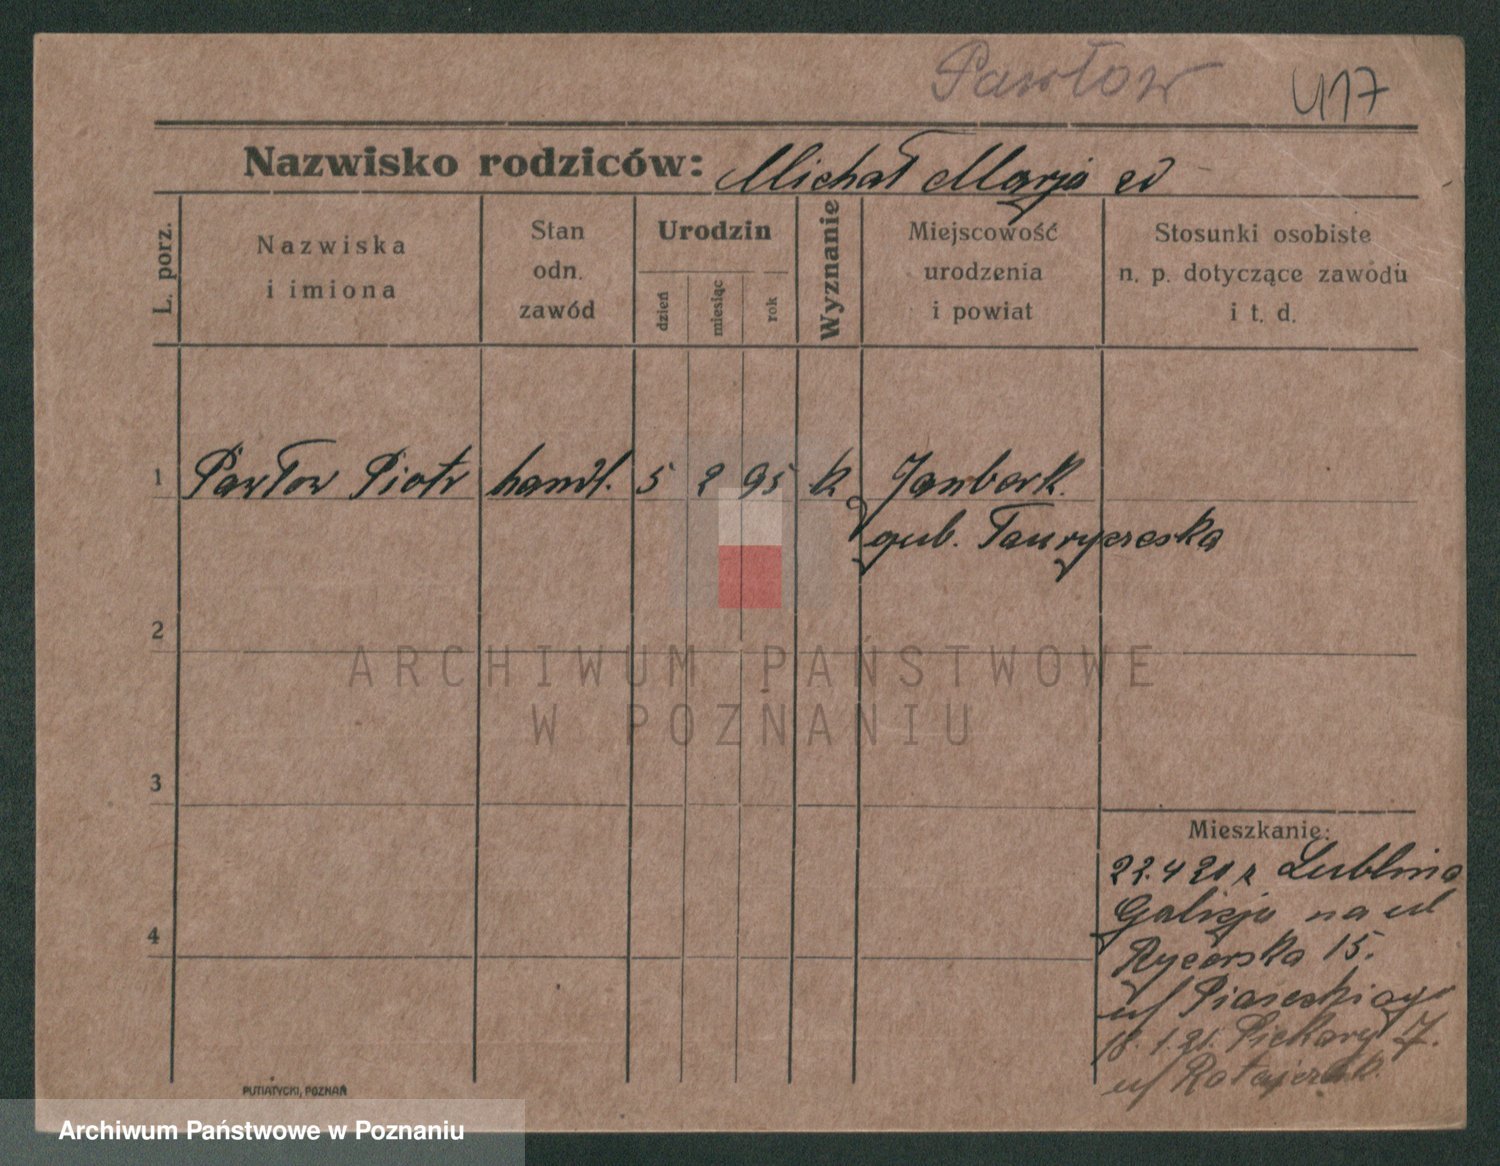 Pawłow 417
Nazwisko rodziców: Michał Marja
L. porz.
Nazwiska
i imiona
Stan
odn.
zawód
Urodzin
dzień
miesiąc
rok
Wyznanie
Miejscowość
urodzenia
i powiat
Stosunki osobiste
n. p. dotyczące zawodu
i t. d.
1 Pawłow Piotr handl. 5 2 95 k Janbork.
gub. Tauryczeska
2
ARCHIWUM PAŃSTWOWE
W POZNANIU
3
4
Mieszkanie:
22.4 20 z Lublina
Galicja na ul
Rycerska 15.
u/ Piaseckiego
18.1.21. Piekary 7.
u/ Ratajczak.
PUTIATYCKI, POZNAŃ
Archiwum Państwowe w Poznaniu